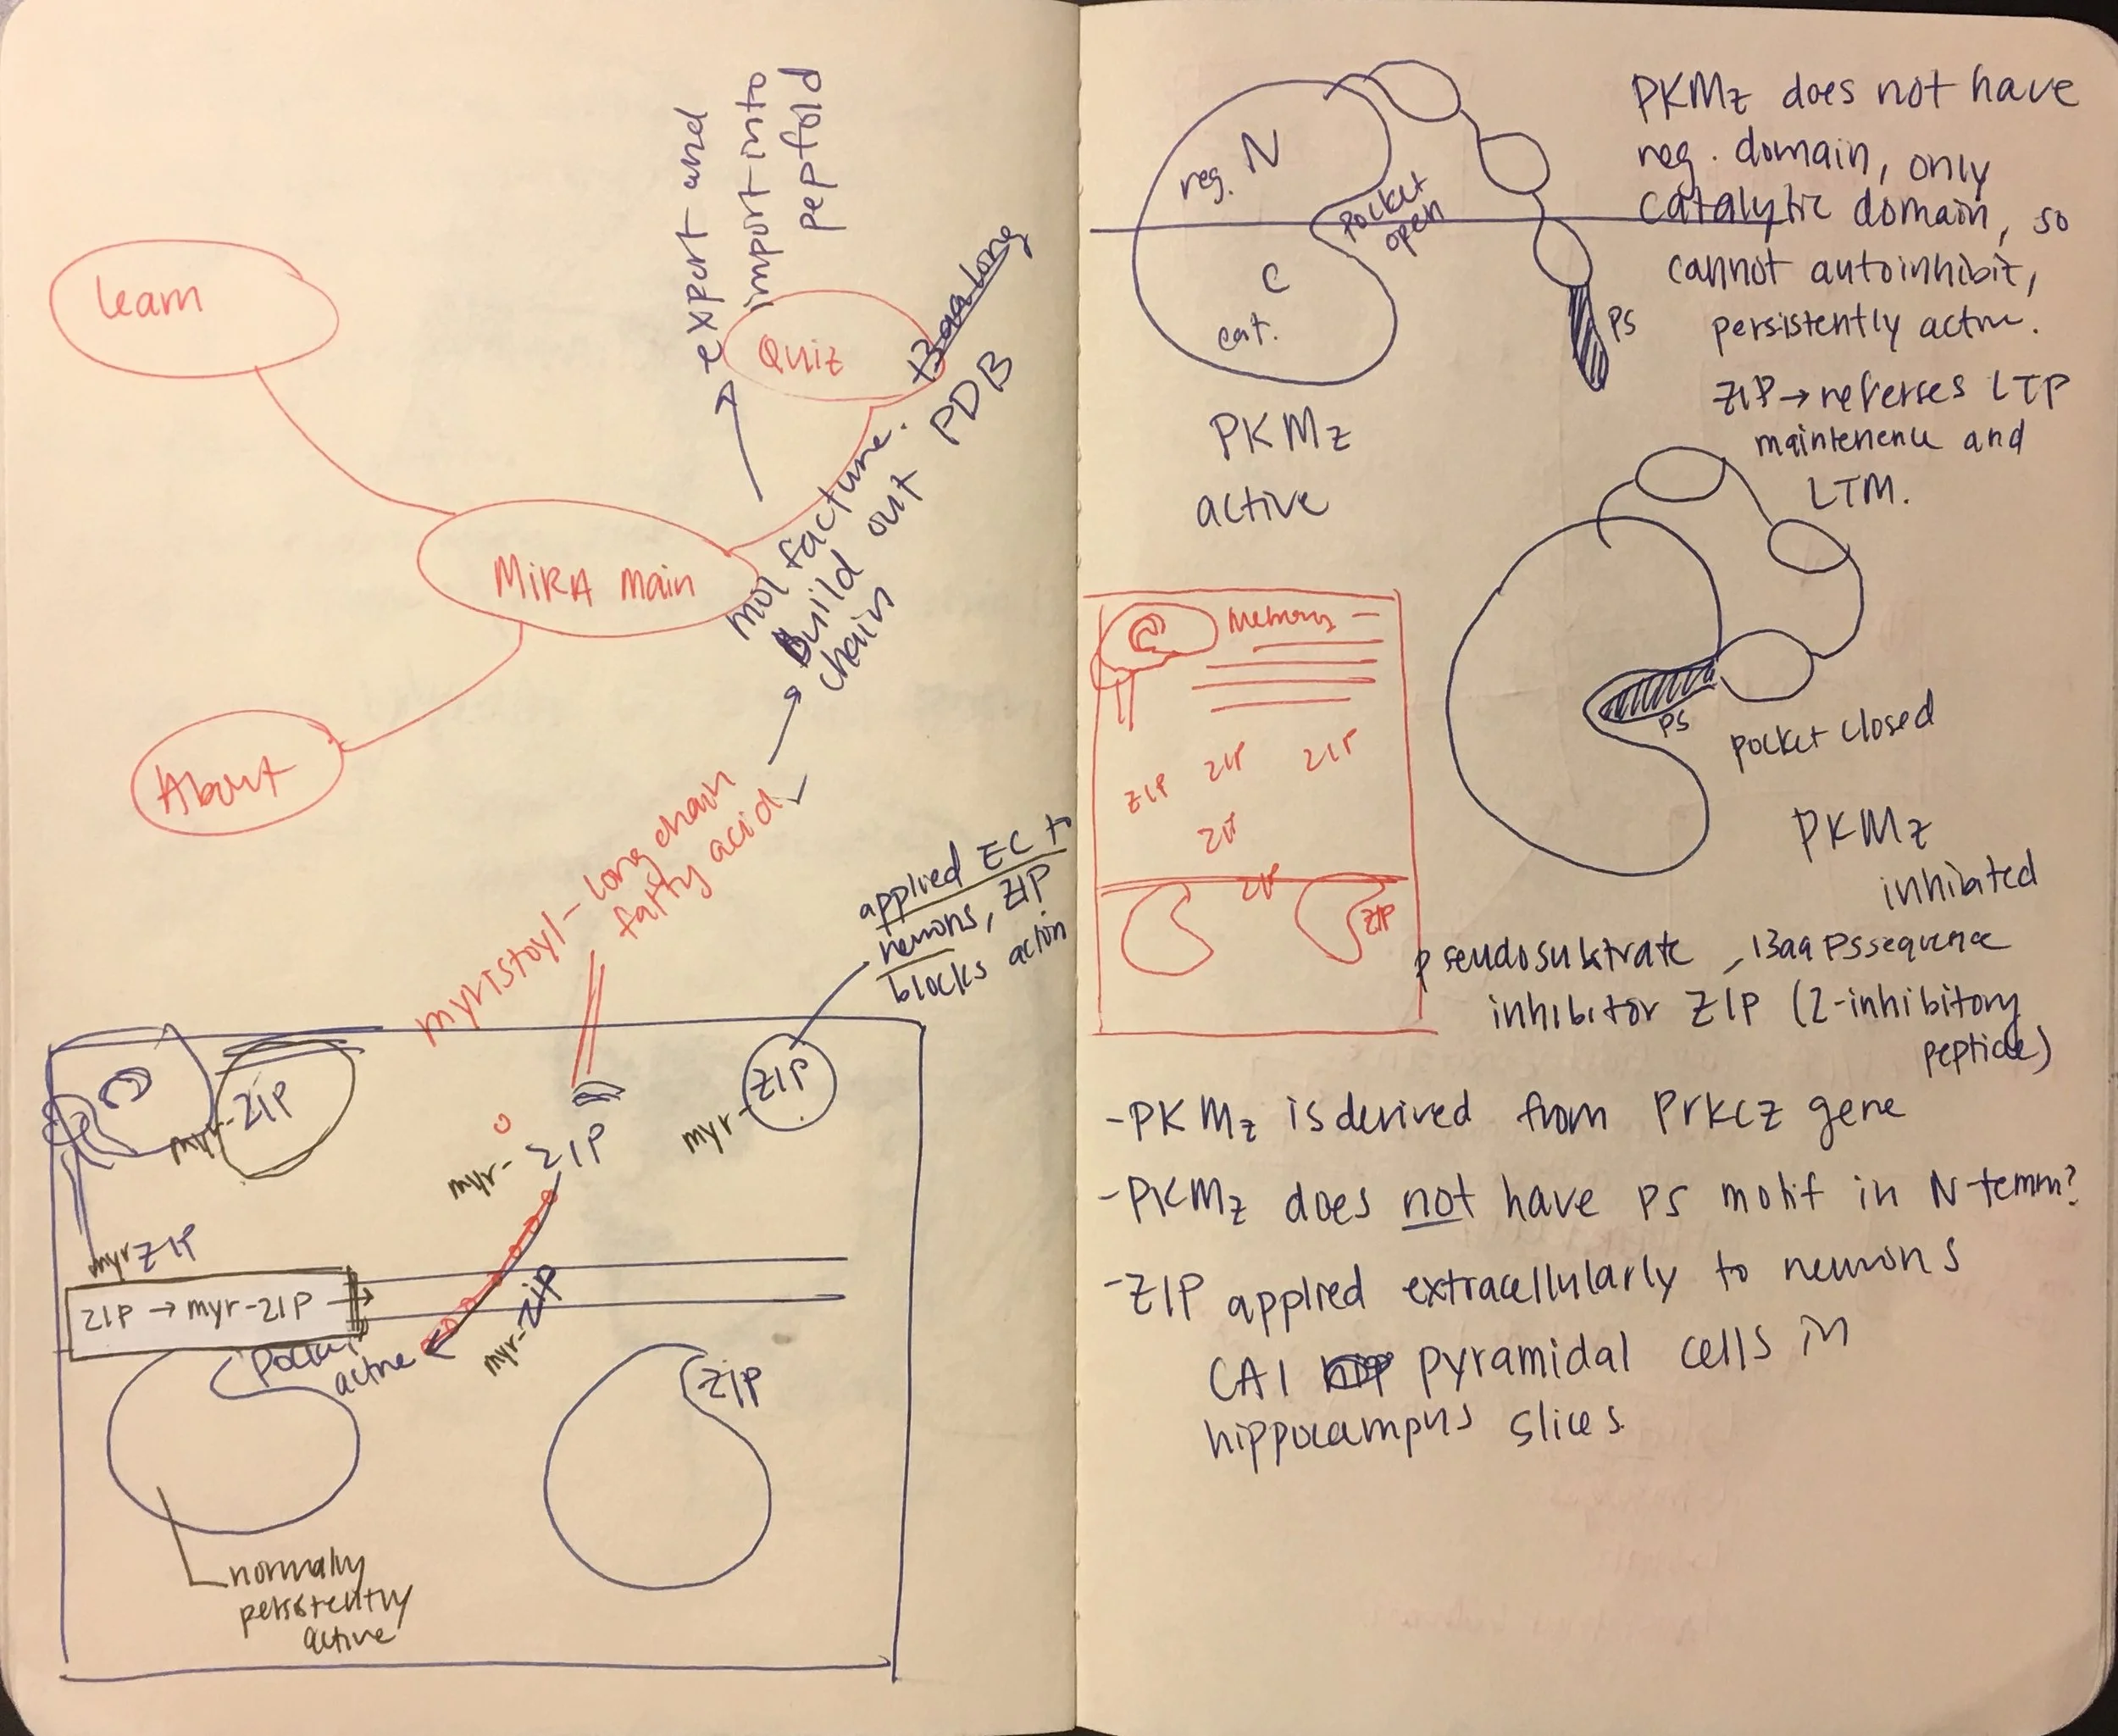 export and
import into
pepfold
learn
Quiz
13aa long
MiRA main
mol facture.
Build out PDB
chain
About
myristoyl - long chain
fatty acid
applied EC to
neurons, ZIP
blocks action
myr-ZIP
myr-ZIP
myr-ZIP
myr ZIP
ZIP → myr-ZIP →
myr-ZIP
Pocket
active
ZIP
normally
persistently
active
reg. N
pocket
open
C
cat.
PS
PKMz
active
PKMz does not have
reg. domain, only
catalytic domain, so
cannot autoinhibit,
persistently active.
ZIP → reverses LTP
maintenence and
LTM.
Memory
ZIP ZIP ZIP
ZIP
ZIP
ZIP
PS
pocket closed
PKMz
inhibited
pseudosubstrate, 13aa PS sequence
inhibitor ZIP (Z-inhibitory
peptide)
- PKMz is derived from Prkcz gene
- PKMz does not have PS motif in N-term?
- ZIP applied extracellularly to neurons
CA1 pyramidal cells in
hippocampus slices